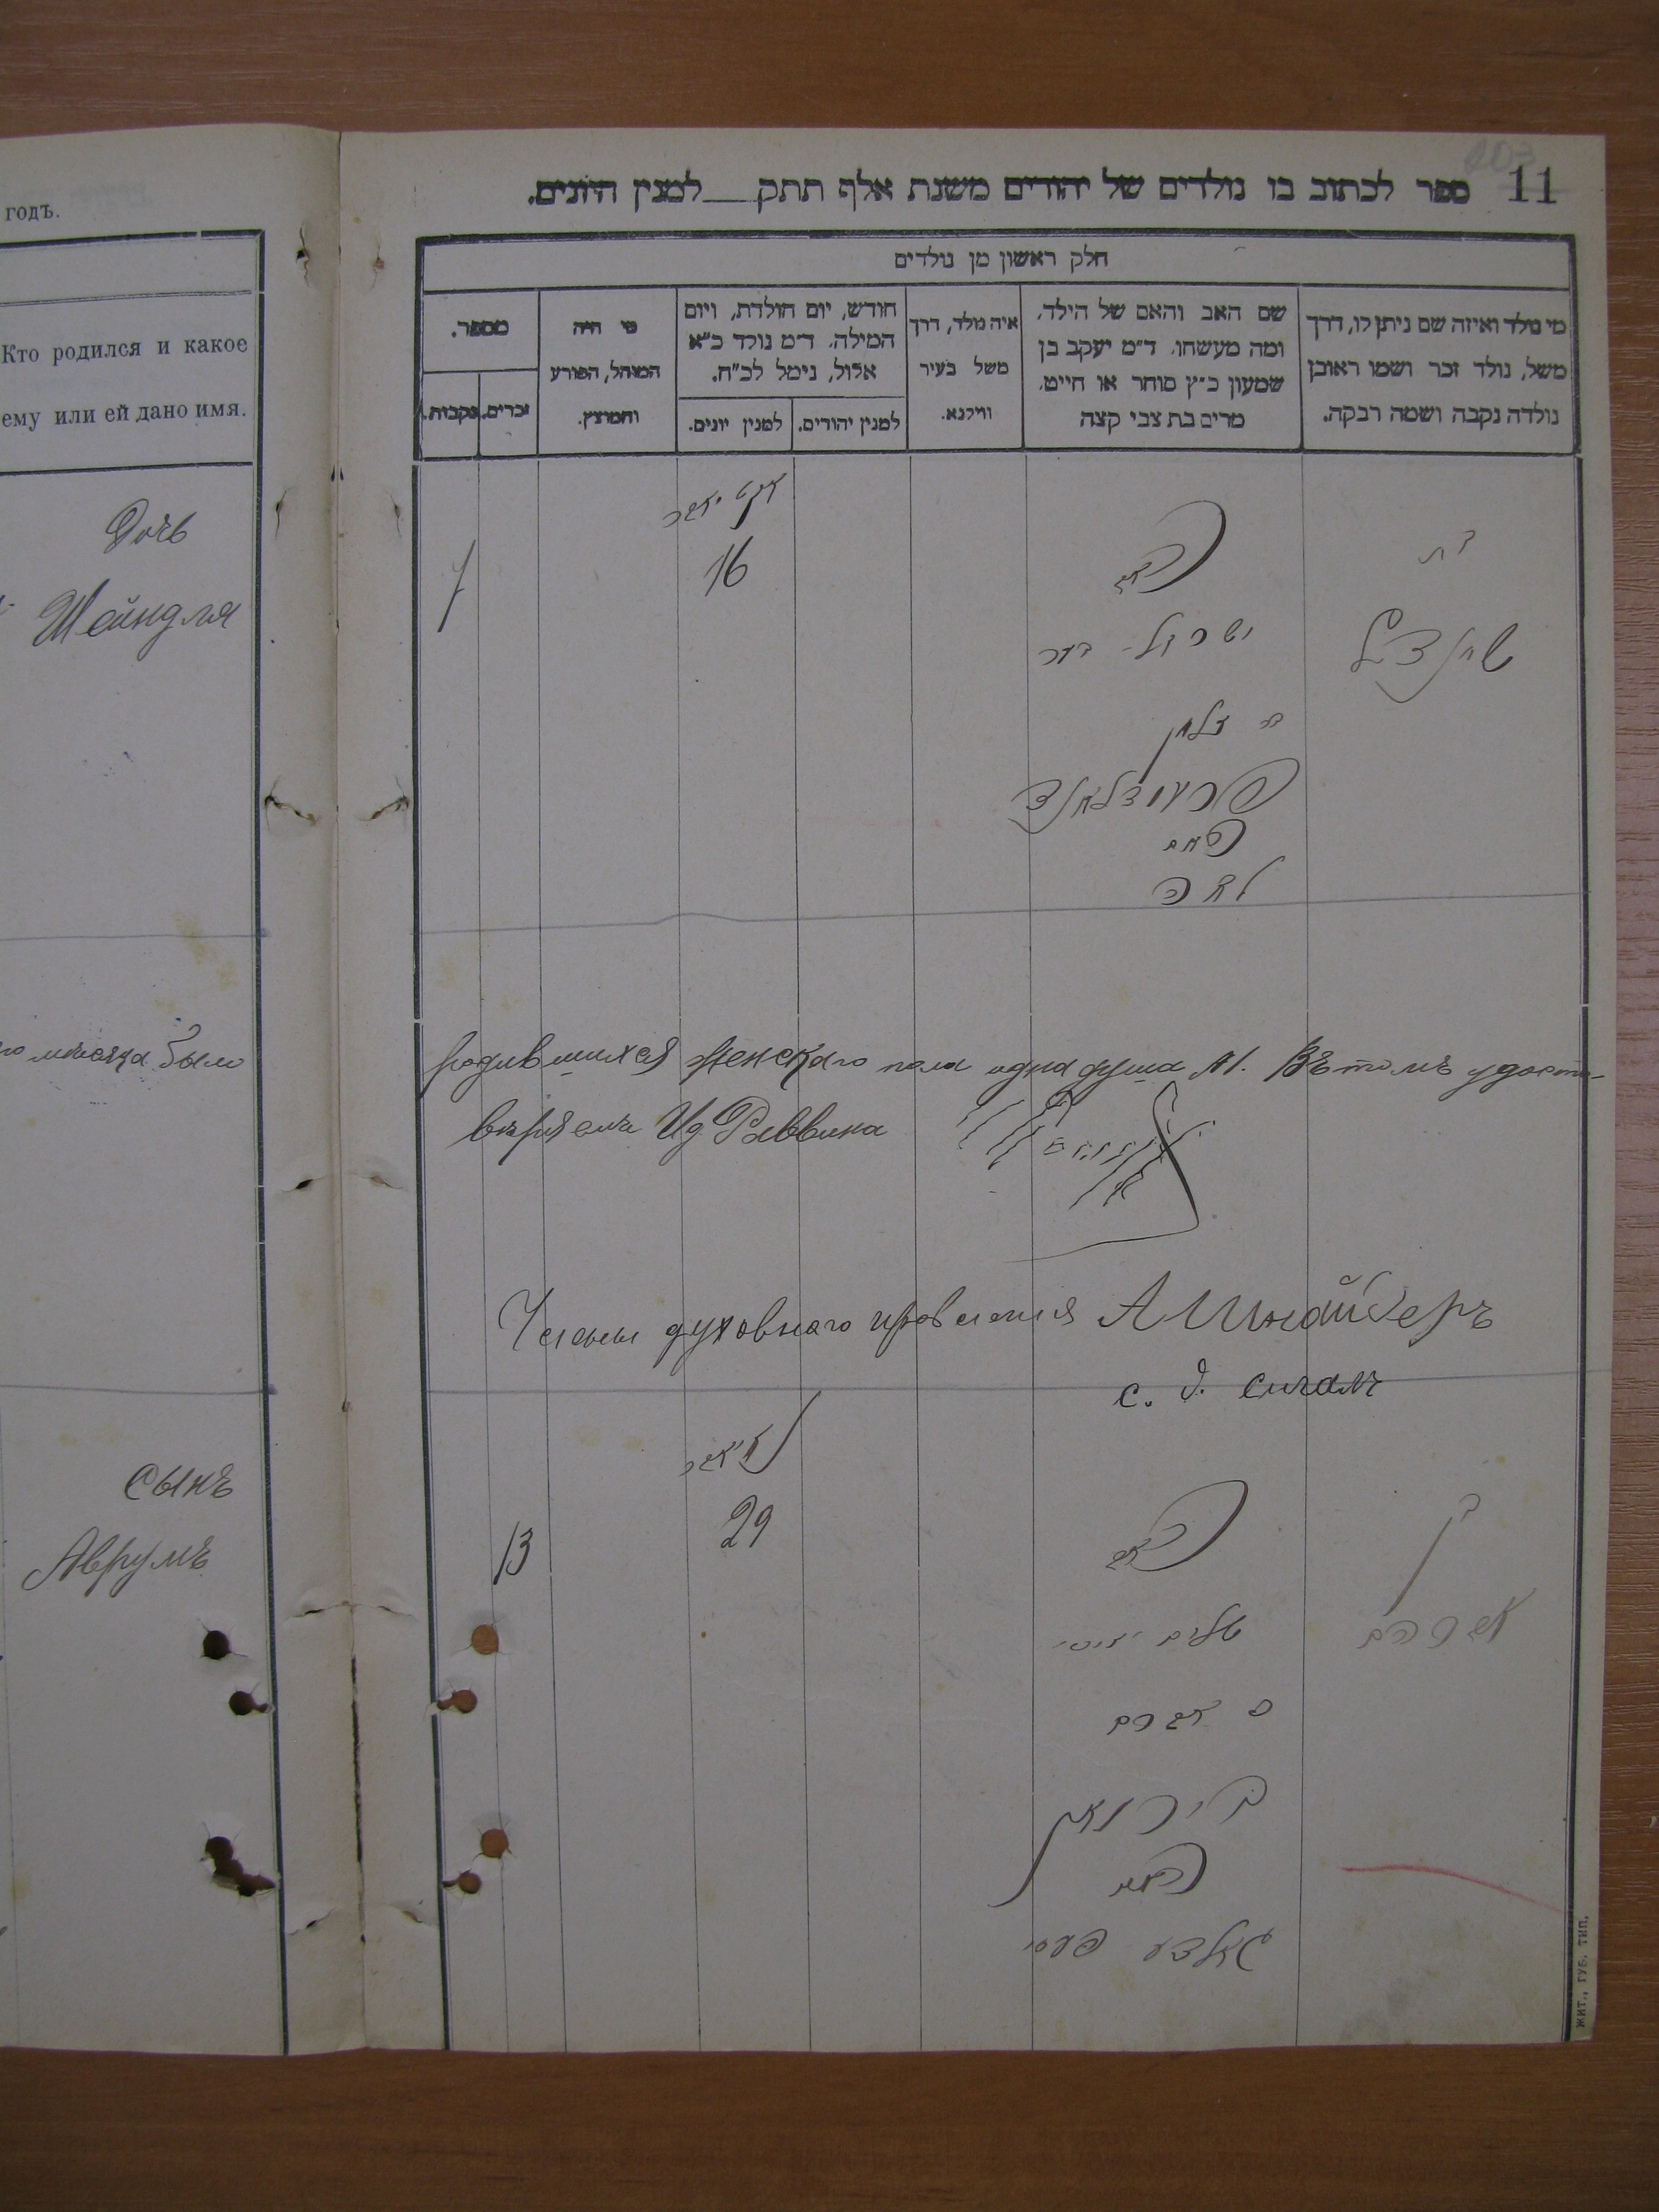 годъ.
Кто родился и какое
ему или ей дано имя.
Дочь
Шейндля
мѣсяца было
сынъ
Аврумъ
11
ספר לכתוב בו נולדים של יהודים משנת אלף תתק___למנין היונים.
חלק ראשון מן נולדים
מי נולד ואיזה שם ניתן לו, דרך
משל, נולד זכר ושמו ראובן
נולדה נקבה ושמה רבקה.
שם האב והאם של הילד,
ומה מעשהו. ד״מ יעקב בן
שמעון כ״ץ סוחר או חייט,
מרים בת צבי קצה
איה מולד, דרך
משל בעיר
ווילנא.
חודש, יום הולדת, ויום
המילה. ד״מ נולד כ״א
אלול, נימל לכ״ח.
למנין יהודים.
למנין יונים.
מי היה
המוהל, הפורע
והמוצץ.
מספר.
זכרים.
נקבות.
בת
שיינדל
האב
ישראל בער
פריידלאנד
האם
לאה
16
родившихся женскаго пола одна душа №1. Въ томъ удосто-
вѣряемъ И.д. Раввина
Члены духовнаго правленія А Шнайдеръ
13
29
בן
אברהם
האב
שלום
אברהם
בירמאן
האם
גאלדע פעסי
ЖИТ., ГУБ. ТИП.